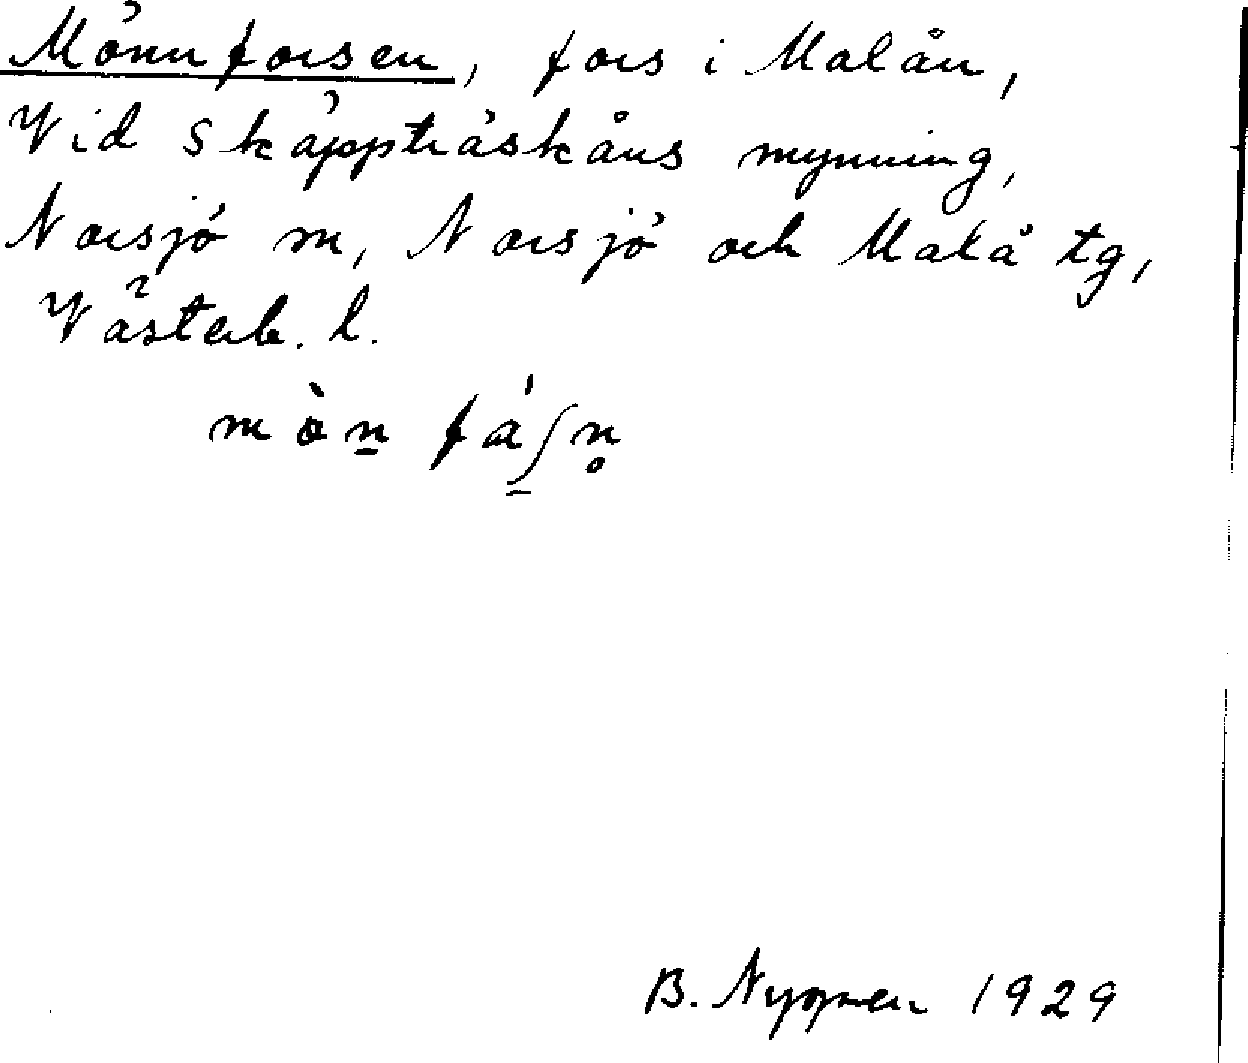 Mönnforsen, fors i Malån,
Vid Skäppträskåns mynning,
Norsjö m, Norsjö och Malå tg,
Västerb. l.
mòn̲ fáʃ̲n̥
B. Nyman 1929